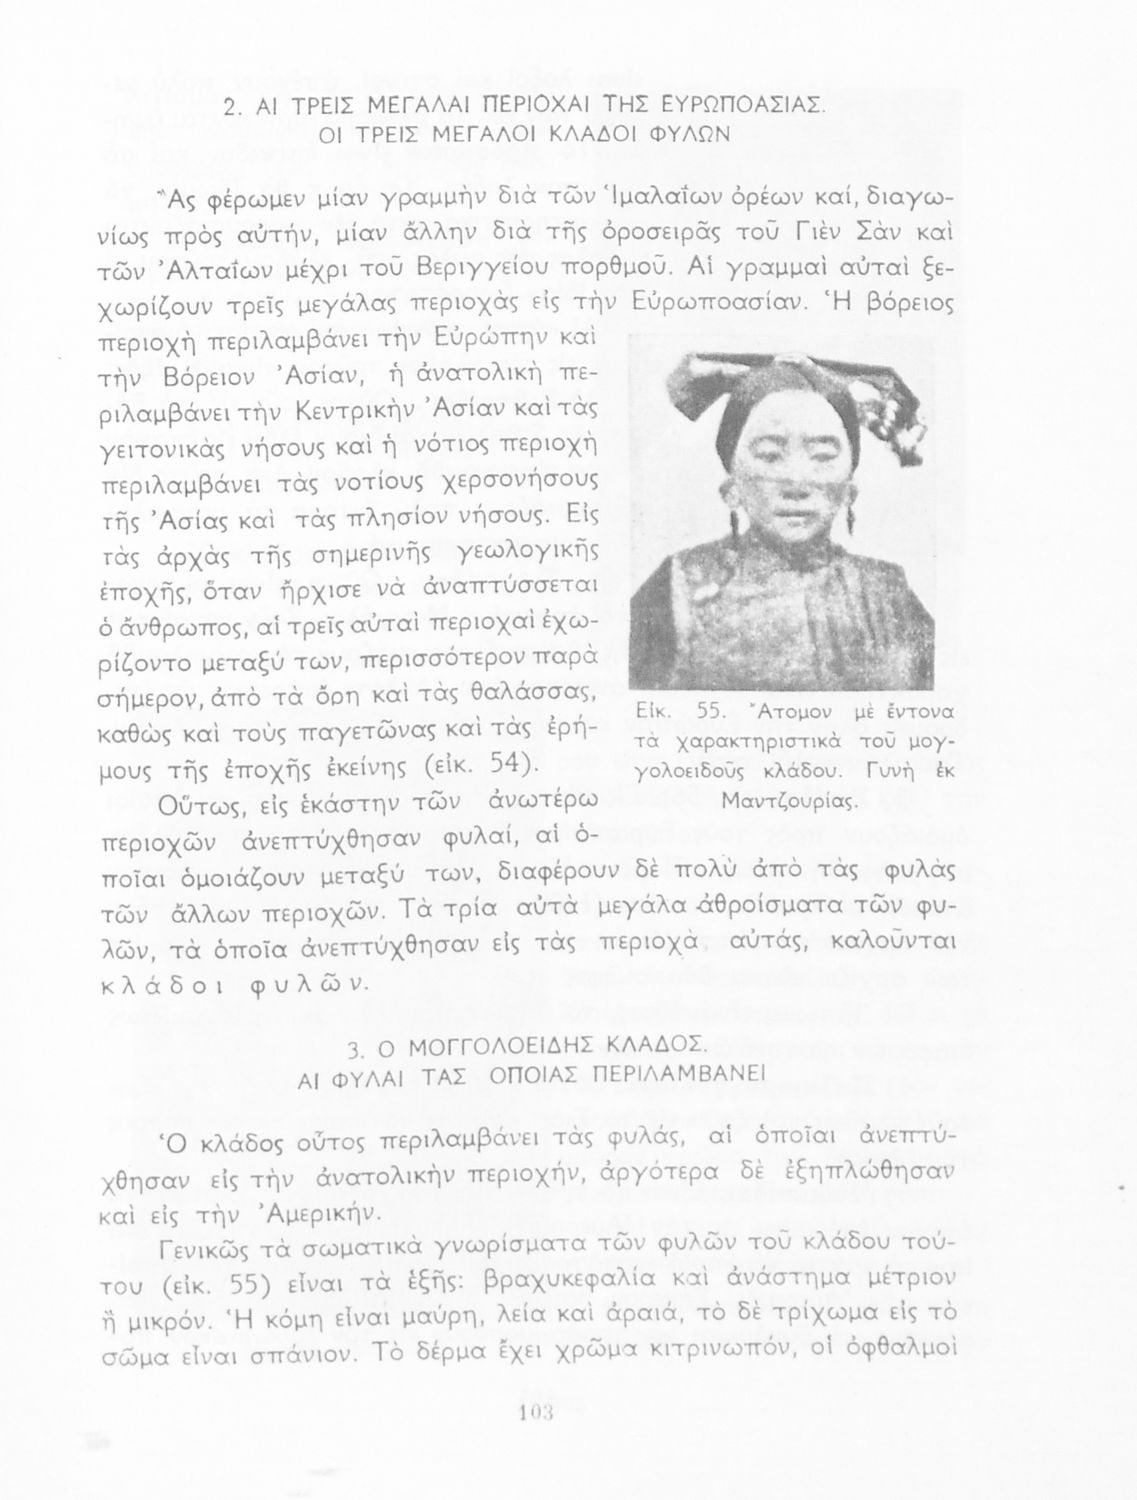 2. ΑΙ ΤΡΕΙΣ ΜΕΓΑΛΑΙ ΠΕΡΙΟΧΑΙ ΤΗΣ ΕΥΡΩΠΟΑΣΙΑΣ.
ΟΙ ΤΡΕΙΣ ΜΕΓΑΛΟΙ ΚΛΑΔΟΙ ΦΥΛΩΝ
Ἂς φέρωμεν μίαν γραμμὴν διὰ τῶν Ἱμαλαΐων ὀρέων καί, διαγω-
νίως πρὸς αὐτήν, μίαν ἄλλην διὰ τῆς ὀροσειρᾶς τοῦ Γιὲν Σὰν καὶ
τῶν Ἀλταΐων μέχρι τοῦ Βεριγγείου πορθμοῦ. Αἱ γραμμαὶ αὐταὶ ξε-
χωρίζουν τρεῖς μεγάλας περιοχὰς εἰς τὴν Εὐρωποασίαν. Ἡ βόρειος
περιοχὴ περιλαμβάνει τὴν Εὐρώπην καὶ
τὴν Βόρειον Ἀσίαν, ἡ ἀνατολικὴ πε-
ριλαμβάνει τὴν Κεντρικὴν Ἀσίαν καὶ τὰς
γειτονικὰς νήσους καὶ ἡ νότιος περιοχὴ
περιλαμβάνει τὰς νοτίους χερσονήσους
τῆς Ἀσίας καὶ τὰς πλησίον νήσους. Εἰς
τὰς ἀρχὰς τῆς σημερινῆς γεωλογικῆς
ἐποχῆς, ὅταν ἤρχισε νὰ ἀναπτύσσεται
ὁ ἄνθρωπος, αἱ τρεῖς αὐταὶ περιοχαὶ ἐχω-
ρίζοντο μεταξύ των, περισσότερον παρὰ
σήμερον, ἀπὸ τὰ ὄρη καὶ τὰς θαλάσσας,
καθὼς καὶ τοὺς παγετῶνας καὶ τὰς ἐρή-
μους τῆς ἐποχῆς ἐκείνης (εἰκ. 54).
Εἰκ. 55. Ἄτομον μὲ ἔντονα
τὰ χαρακτηριστικὰ τοῦ μογ-
γολοειδοῦς κλάδου. Γυνὴ ἐκ
Μαντζουρίας.
Οὕτως, εἰς ἑκάστην τῶν ἀνωτέρω
περιοχῶν ἀνεπτύχθησαν φυλαί, αἱ ὁ-
ποῖαι ὁμοιάζουν μεταξύ των, διαφέρουν δὲ πολὺ ἀπὸ τὰς φυλὰς
τῶν ἄλλων περιοχῶν. Τὰ τρία αὐτὰ μεγάλα ἀθροίσματα τῶν φυ-
λῶν, τὰ ὁποῖα ἀνεπτύχθησαν εἰς τὰς περιοχὰς αὐτάς, καλοῦνται
κλάδοι φυλῶν.
3. Ο ΜΟΓΓΟΛΟΕΙΔΗΣ ΚΛΑΔΟΣ.
ΑΙ ΦΥΛΑΙ ΤΑΣ ΟΠΟΙΑΣ ΠΕΡΙΛΑΜΒΑΝΕΙ
Ὁ κλάδος οὗτος περιλαμβάνει τὰς φυλάς, αἱ ὁποῖαι ἀνεπτύ-
χθησαν εἰς τὴν ἀνατολικὴν περιοχήν, ἀργότερα δὲ ἐξηπλώθησαν
καὶ εἰς τὴν Ἀμερικήν.
Γενικῶς τὰ σωματικὰ γνωρίσματα τῶν φυλῶν τοῦ κλάδου τού-
του (εἰκ. 55) εἶναι τὰ ἑξῆς: βραχυκεφαλία καὶ ἀνάστημα μέτριον
ἢ μικρόν. Ἡ κόμη εἶναι μαύρη, λεία καὶ ἀραιά, τὸ δὲ τρίχωμα εἰς τὸ
σῶμα εἶναι σπάνιον. Τὸ δέρμα ἔχει χρῶμα κιτρινωπόν, οἱ ὀφθαλμοὶ
103